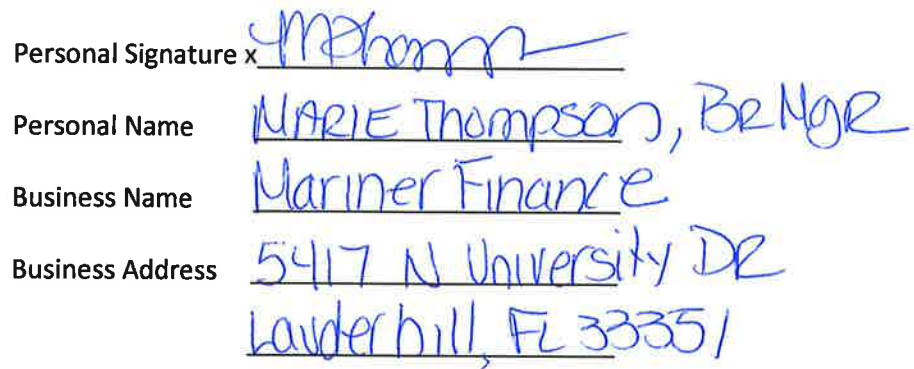 Personal Signature x MThompson
Personal Name MARIE Thompson, BR MgR
Business Name Mariner Finance
Business Address 5417 N University DR
Lauderhill, FL 33351